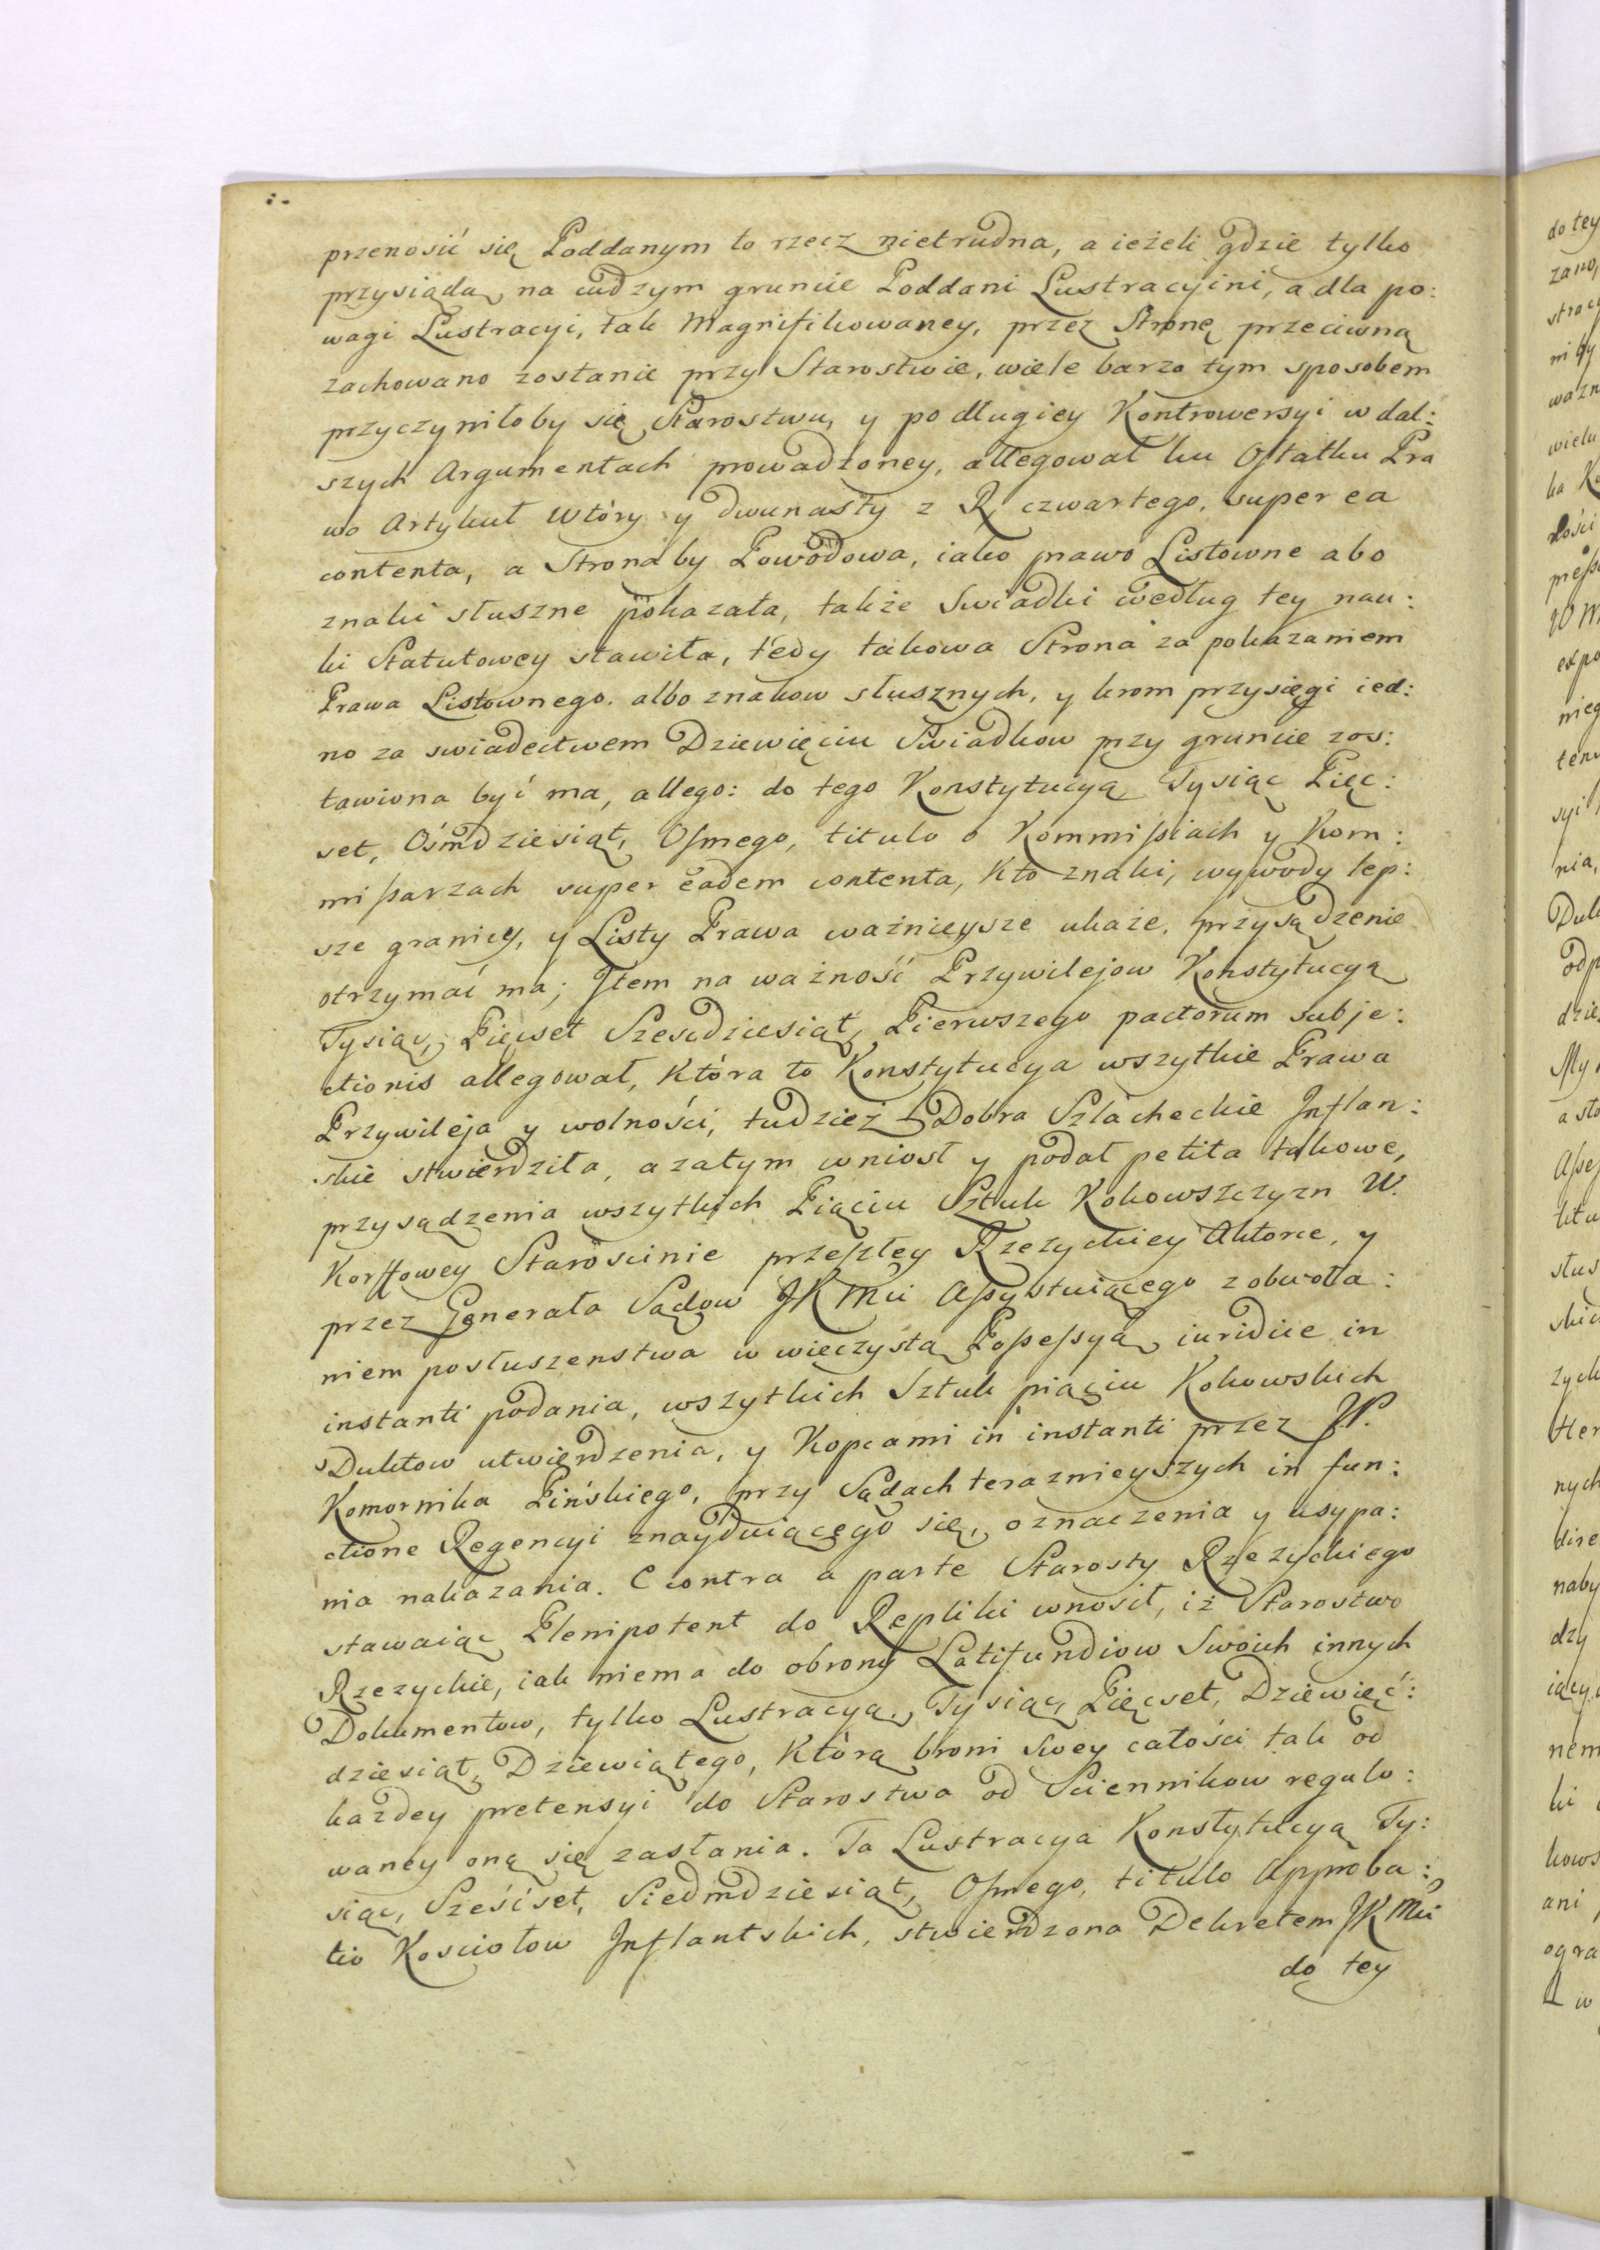 przenosić się Poddanym to rzecz nietrudna, a ieżeli gdzie tylko
przysiądą na cudzym gruncie Poddani Lustracyini, a dla po:
wagi Lustracyi, tak Magnifikowaney, przez Stronę przeciwną
zachowano zostanie przy Starostwie, wiele barzo tym sposobem
przyczyniłoby się Starostwu, y po długiey Kontrowersyi w dal:
szych Argumentach prowadzoney, allegował ku Ostatku Pra
wo Artykuł Wtóry y dwunasty z R. czwartego, super ea
contenta, a Strona by Powodowa, iako prawo Listowne abo
znaki słuszne pokazała, także Swiadki według tey nau:
ki Statutowey stawiła, tedy takowa Strona za pokazaniem
Prawa Listownego. albo znakow słusznych, y krom przysięgi ied:
no za swiadectwem Dziewięciu Swiadkow przy gruncie zos:
tawiona być ma, allego: do tego Konstytucyą Tysiąc Pięc:
set, Ośmdziesiąt, Osmego, titulo o Kommissiach y Kom:
missarzach super eadem contenta, Kto znaki, wywody lep:
sze granicy, y Listy Prawa ważnieysze ukaże, przysądzenie
otrzymać ma; Item na ważność Przywilejow Konstytucyą
Tysiąc, Pięcset Szescdziesiąt, Pierwszego pactorum subje:
ctionis allegował, Która to Konstytucya wszytkie Prawa
Przywileja y wolności, tudzież Dobra Szlacheckie Inflan:
skie stwierdziła, a zatym wniosł y podał petita takowe,
przysądzenia wszytkich Piąciu Sztuk Kokowszczyzn W.
Korffowey Starościnie przeszłey Rzezyckiey Aktorce, y
przez Generała Sądow JK Mci Assystuiącego z obwoła:
niem posłuszenstwa w wieczystą Possessyą iuridice in
instanti podania, wszytkich Sztuk piąciu Kokowskich
Duktow utwierdzenia, y Kopcami in instanti przez JP.
Komornika Pińskiego, przy Sądach teraznieyszych in fun:
ctione Regencyi znayduiącego się, oznaczenia y usypa:
nia nakazania. E contra a parte Starosty Rzezyckiego
stawaiąc Plenipotent do Repliki wnosił, iż Starostwo
Rzezyckie, iak niema do obrony Latifundiow Swoich innych
Dokumentow, tylko Lustracyą Tysiąc, Pięcset, Dziewięć:
dziesiąt, Dziewiątego, Którą broni swey całości tak od
każdey pretensyi do Starostwa od Sciennikow regulo:
waney oną się zasłania. Ta Lustracya Konstytucyą Ty:
siąc, Sześćset, Siedmdziesiąt, Osmego, titulo Approba:
tio Kosciołow Inflantskich, stwierdzona Dekretem JK Mci
do tey